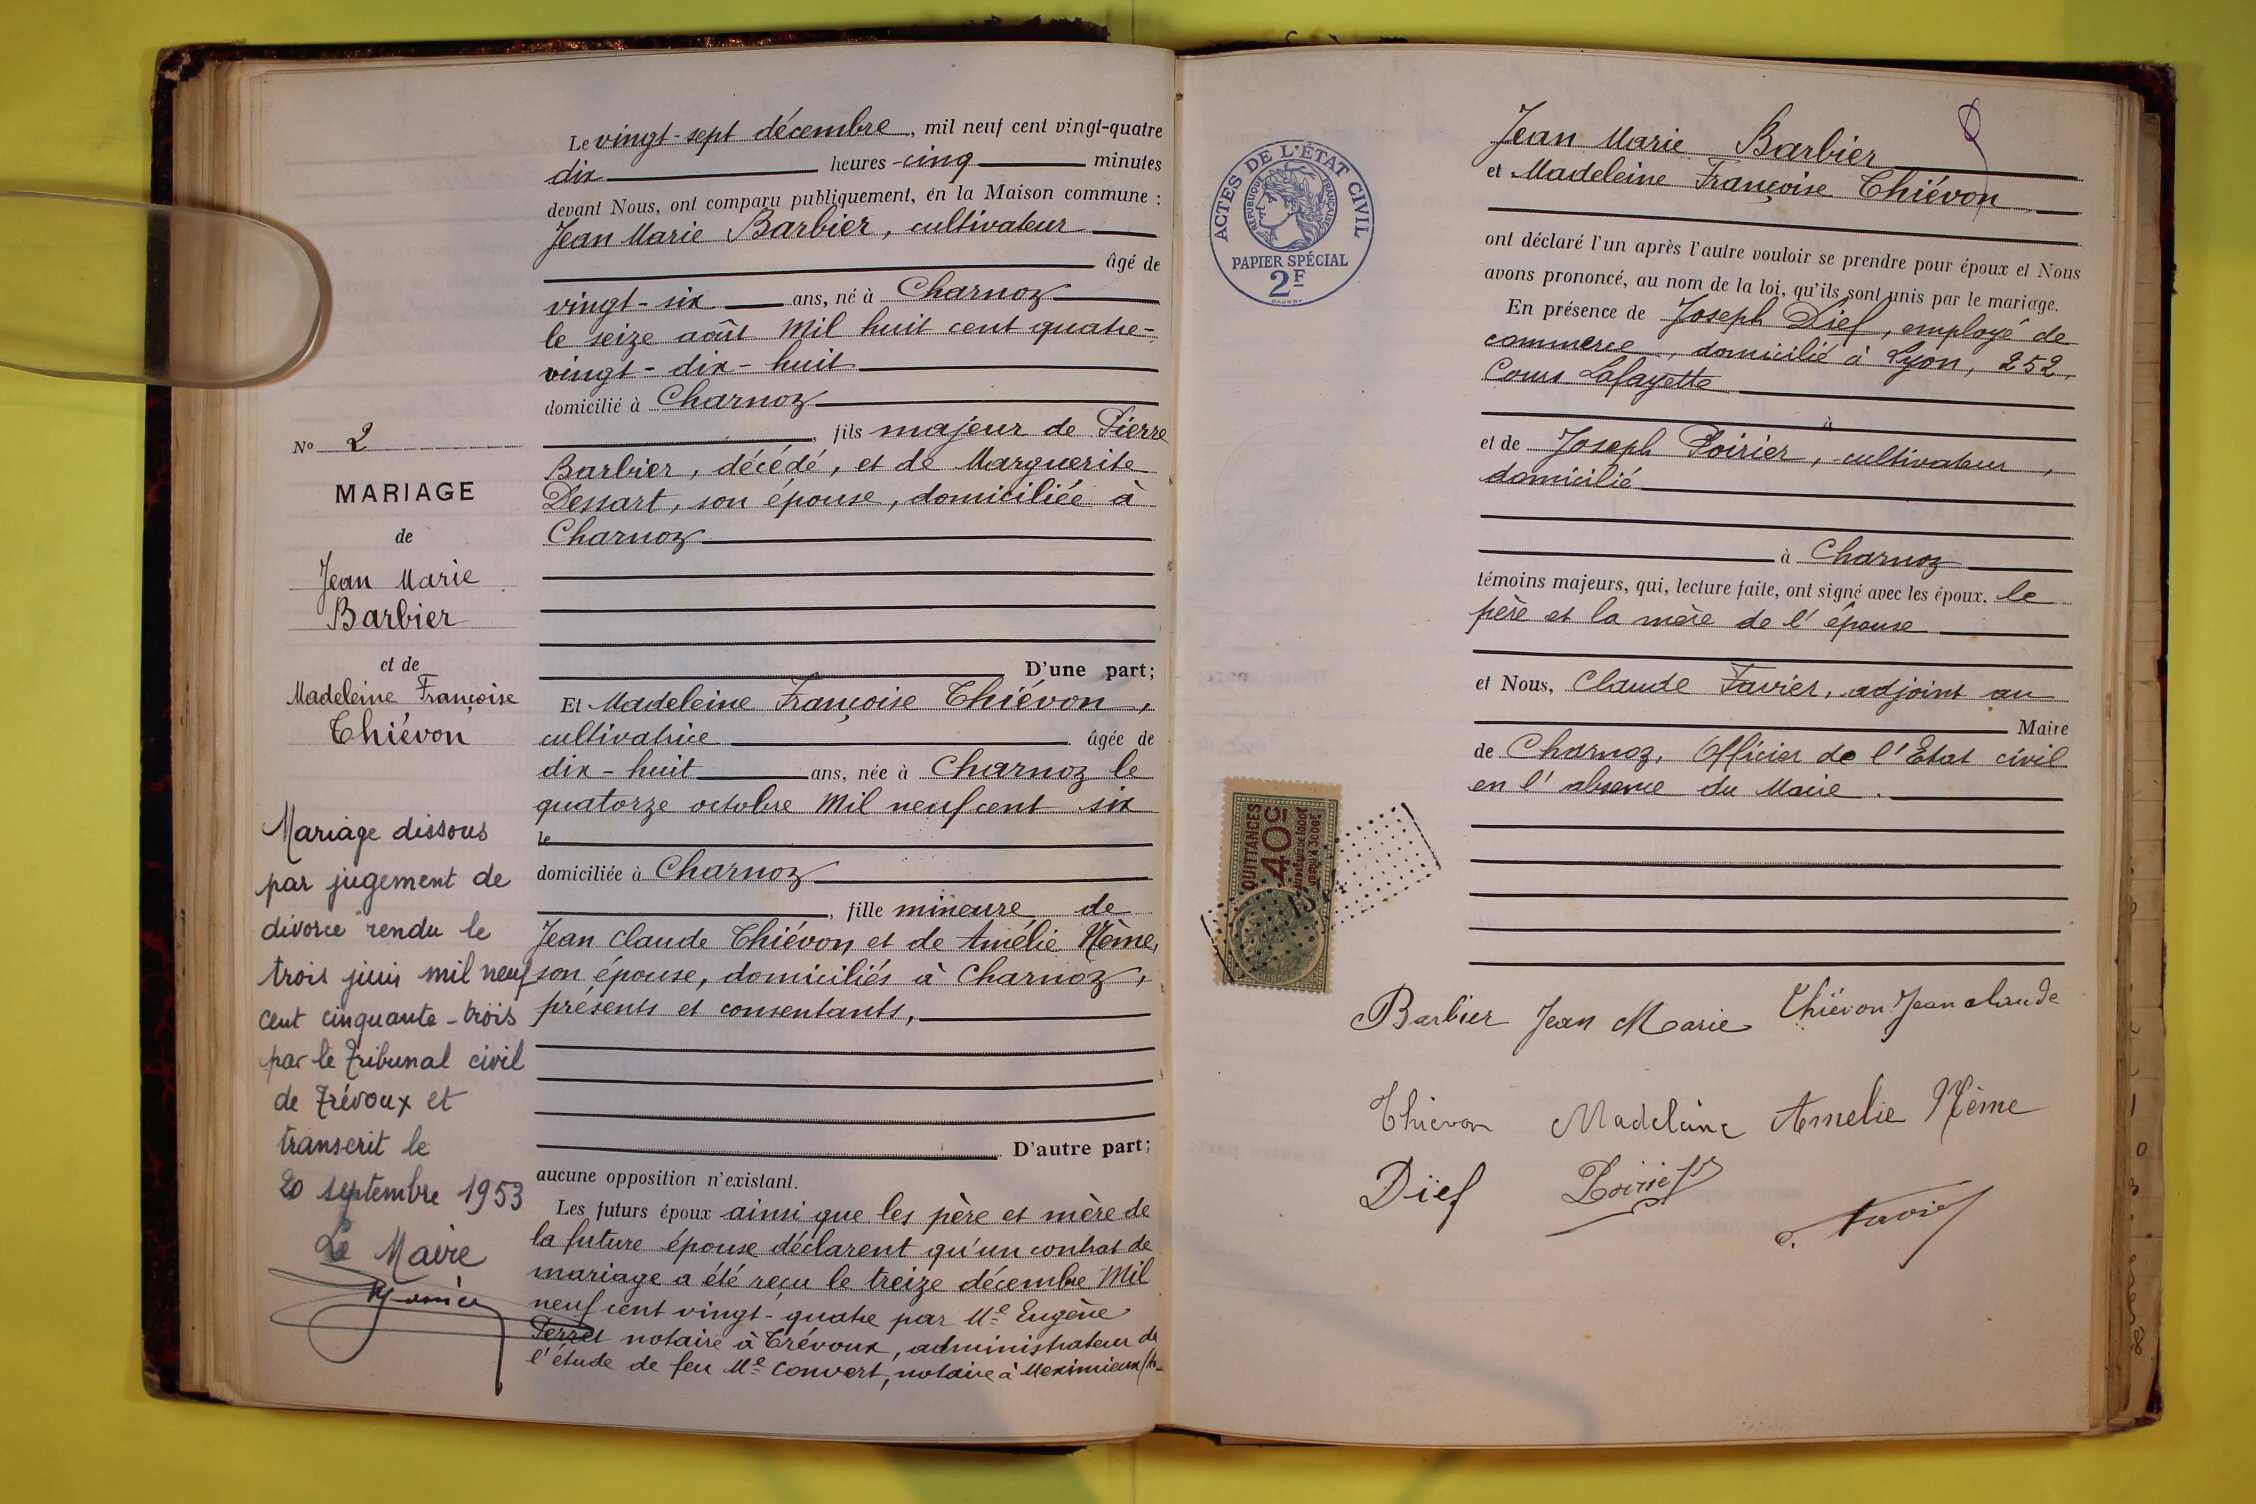 N° 2
MARIAGE
de
Jean Marie
Barbier
et de
Madeleine Françoise
Thiévon
Mariage dissous
par jugement de
divorce rendu le
trois juin mil neuf
cent cinquante-trois
par le Tribunal civil
de Trévoux et
transcrit le
20 septembre 1953
Le Maire
Le vingt-sept décembre, mil neuf cent vingt-quatre
dix heures cinq minutes
devant Nous, ont comparu publiquement, en la Maison commune :
Jean Marie Barbier, cultivateur
âgé de
vingt-six ans, né à Charnoz
le seize août mil huit cent quatre-
vingt-dix-huit
domicilié à Charnoz
, fils majeur de Pierre
Barbier, décédé, et de Marguerite
Dessart, son épouse, domiciliée à
Charnoz
D'une part;
Et Madeleine Françoise Thiévon,
cultivatrice âgée de
dix-huit ans, née à Charnoz le
quatorze octobre mil neuf cent six
le
domiciliée à Charnoz
, fille mineure de
Jean Claude Thiévon et de Amélie Nême,
son épouse, domiciliés à Charnoz,
présents et consentants,
D'autre part;
aucune opposition n'existant.
Les futurs époux ainsi que les père et mère de
la future épouse déclarent qu'un contrat de
mariage a été reçu le treize décembre mil
neuf cent vingt-quatre par Me Eugène
Perret notaire à Trévoux, administrateur de
l'étude de feu Me Convert, notaire à Meximieux
ACTES DE L'ÉTAT CIVIL
RÉPUBLIQUE FRANÇAISE
PAPIER SPÉCIAL
2F
QUITTANCES
40c
Jean Marie Barbier
et Madeleine Françoise Thiévon
ont déclaré l'un après l'autre vouloir se prendre pour époux et Nous
avons prononcé, au nom de la loi, qu'ils sont unis par le mariage.
En présence de Joseph Dief, employé de
commerce, domicilié à Lyon, 252,
Cours Lafayette
à
et de Joseph Poirier, cultivateur,
domicilié
à Charnoz
témoins majeurs, qui, lecture faite, ont signé avec les époux, le
père et la mère de l'épouse
et Nous, Claude Favier, adjoint au
Maire
de Charnoz, Officier de l'Etat civil
en l'absence du Maire.
Barbier Jean Marie Thiévon Jean claude
Thievon Madeleine Amelie Nême
Dïef Poirier
c. Favier